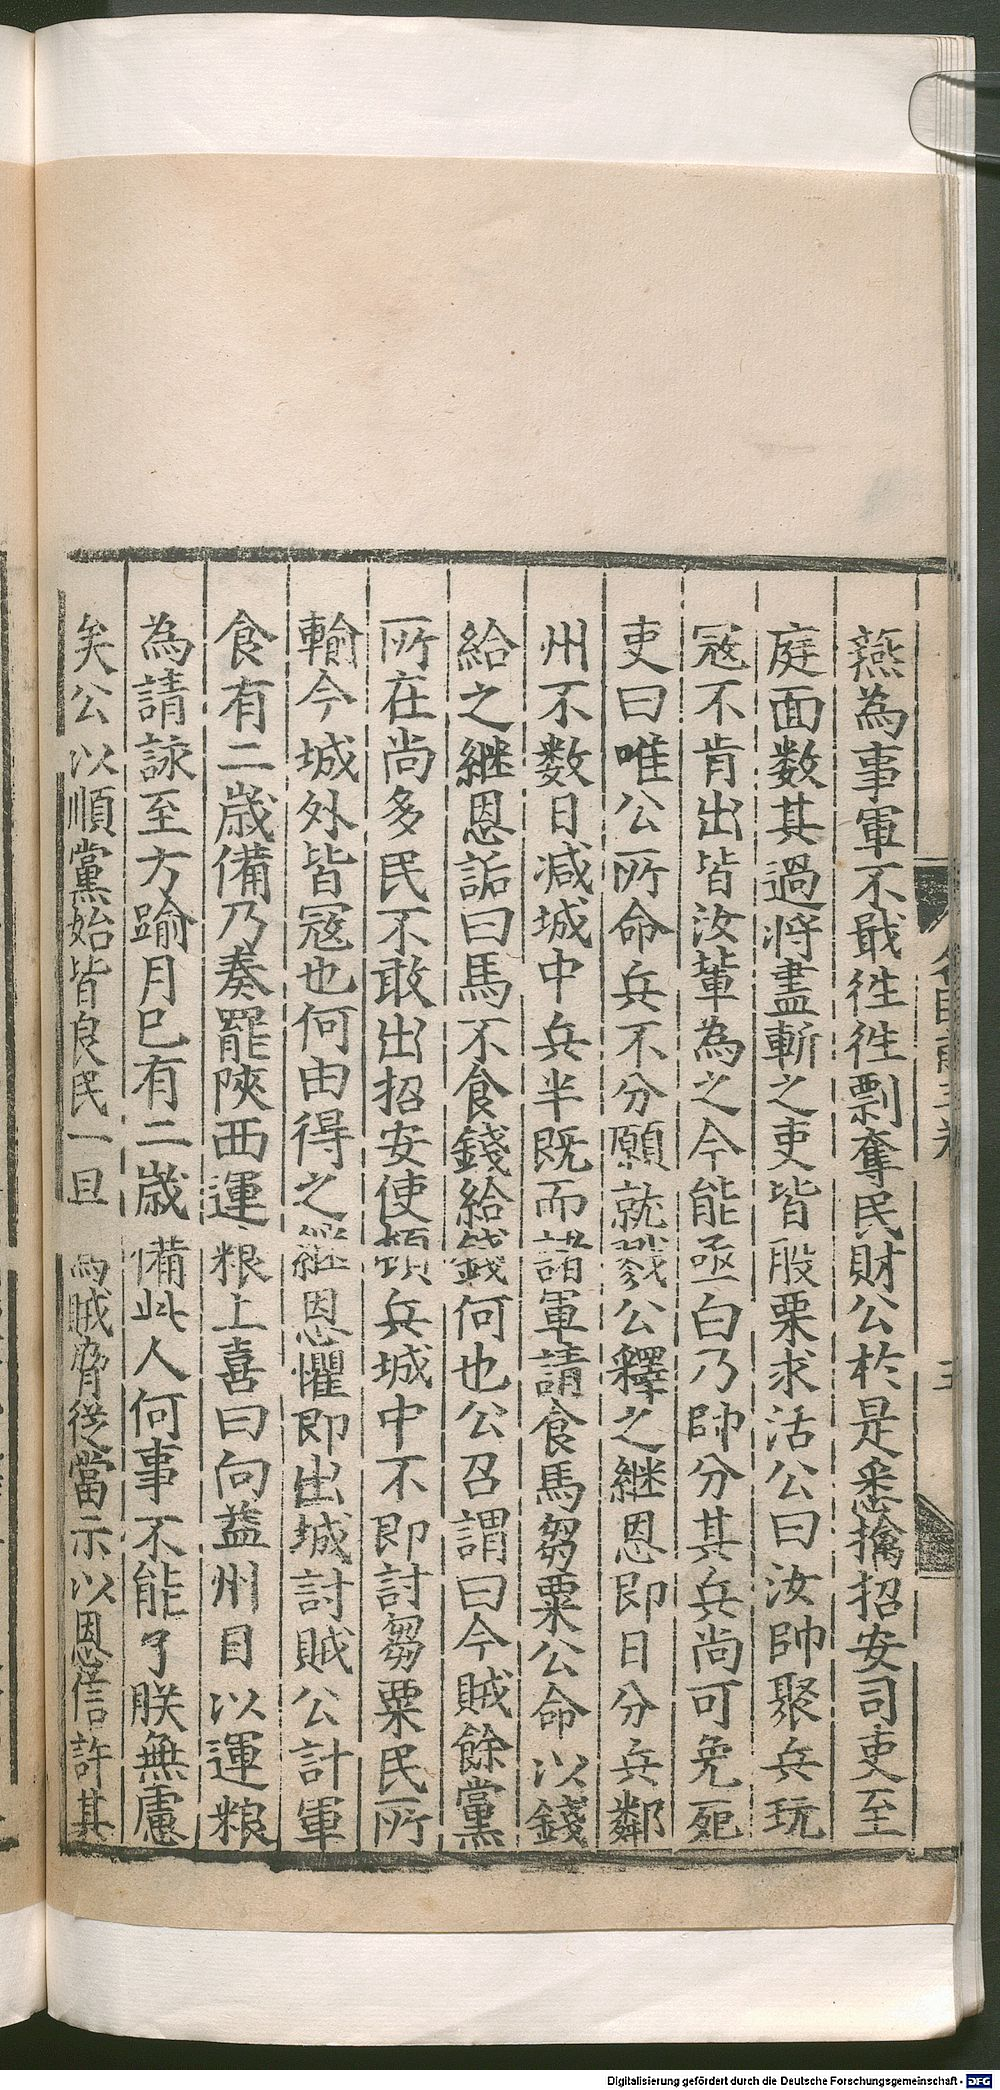 蕪為事軍不戢徃徃剽奪民財公於是悉擒招安司吏至
庭面数其過將盡斬之吏皆股栗求活公曰汝帥聚兵玩
冦不肯出皆汝軰為之今能亟白乃帥分其兵尚可免死
吏曰唯公所命兵不分願就戮公釋之継恩即日分兵鄰
州不数日减城中兵半既而諸軍請食馬芻粟公命以錢
給之継恩詬曰馬不食錢給錢何也公召謂曰今賊餘黨
所在尚多民不敢出招安使頓兵城中不即討芻粟民所
輸今城外皆冦也何由得之継恩懼即出城討賊公計軍
食有二歳備乃奏罷陝西運粮上喜曰向益州日以運粮
為請詠至方踰月巳有二歳備此人何事不能了朕無慮
矣公以順黨始皆良民一旦為賊脅従當示以恩信許其
Digitalisierung gefördert durch die Deutsche Forschungsgemeinschaft - DFG